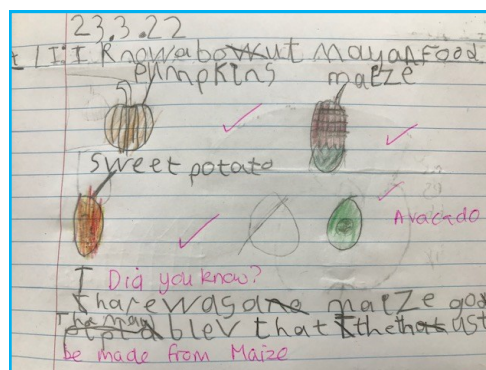 23.3.22
LI: I Know about mayan Food
pumpkins maize
sweet potato
Avacado
Did you know?
thare was a maize god
blev that the
be made from Maize